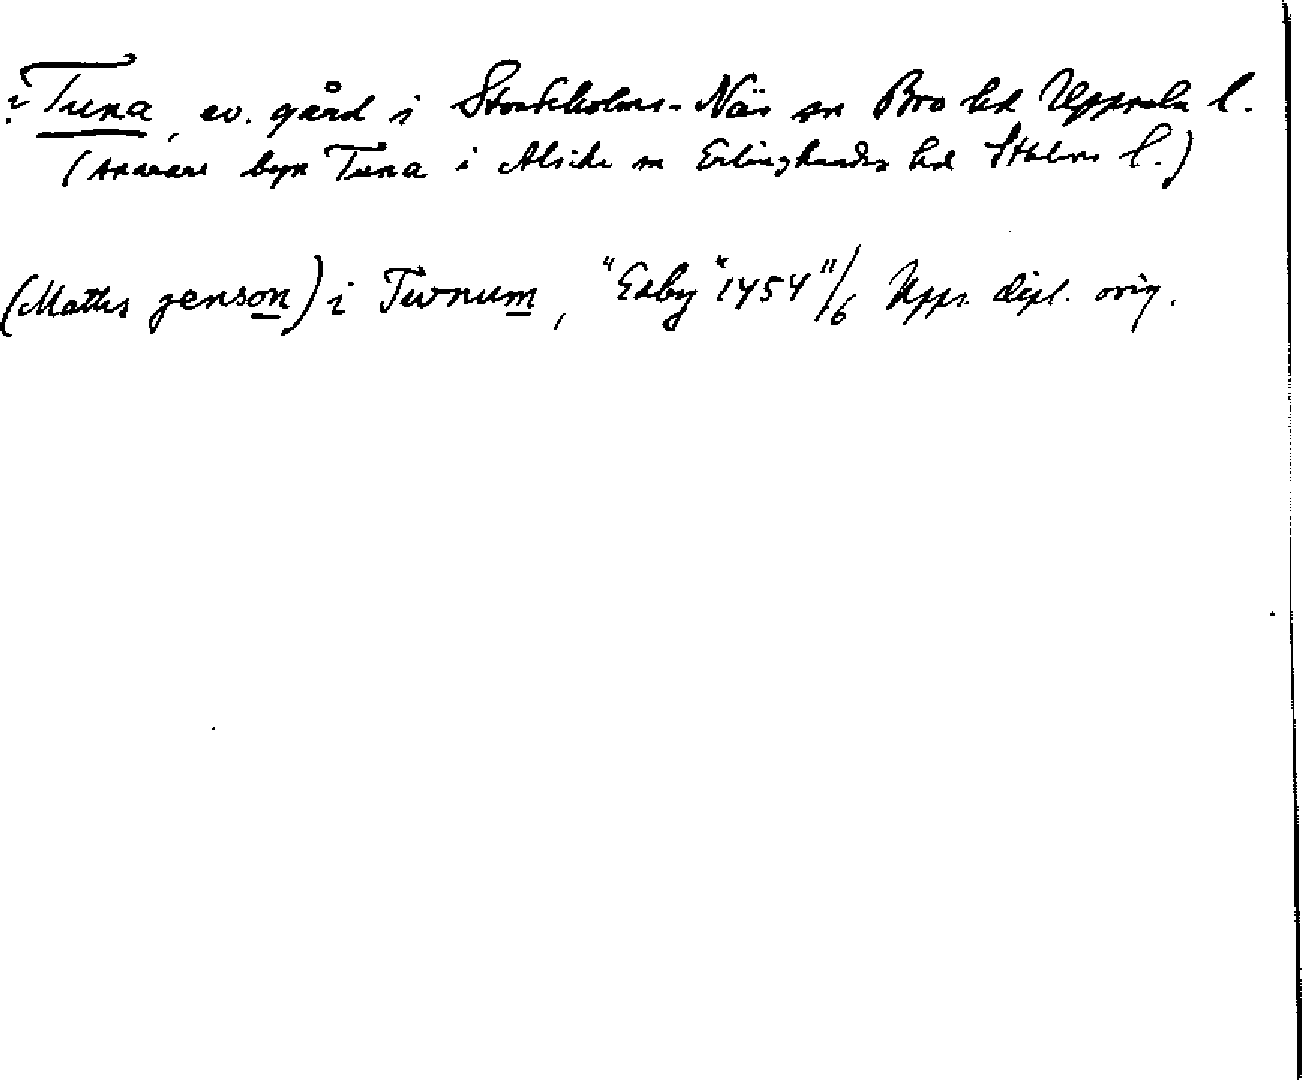 ? Tuna, ev. gård i Stockholms-Näs sn Bro hd Uppsala l.
(snarare byn Tuna i Alsike sn Erlinghundra hd Sthlms l.)
(Mattis jenson) i Twnum, "Edby" 1454 11/6 Upps. dipl. orig.